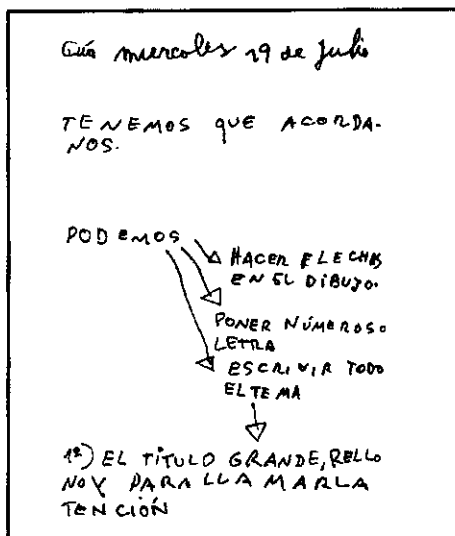 miercoles 19 de Julio
TENEMOS QUE ACORDA-
NOS.
PODEMOS
HACER FLECHAS
EN EL DIBUJO.
PONER NÚMEROS O
LETRA
ESCRIVIR TODO
EL TEMA
1º) EL TÍTULO GRANDE, RELLO
NO Y PARA LLA MAR LA
TENCIÓN